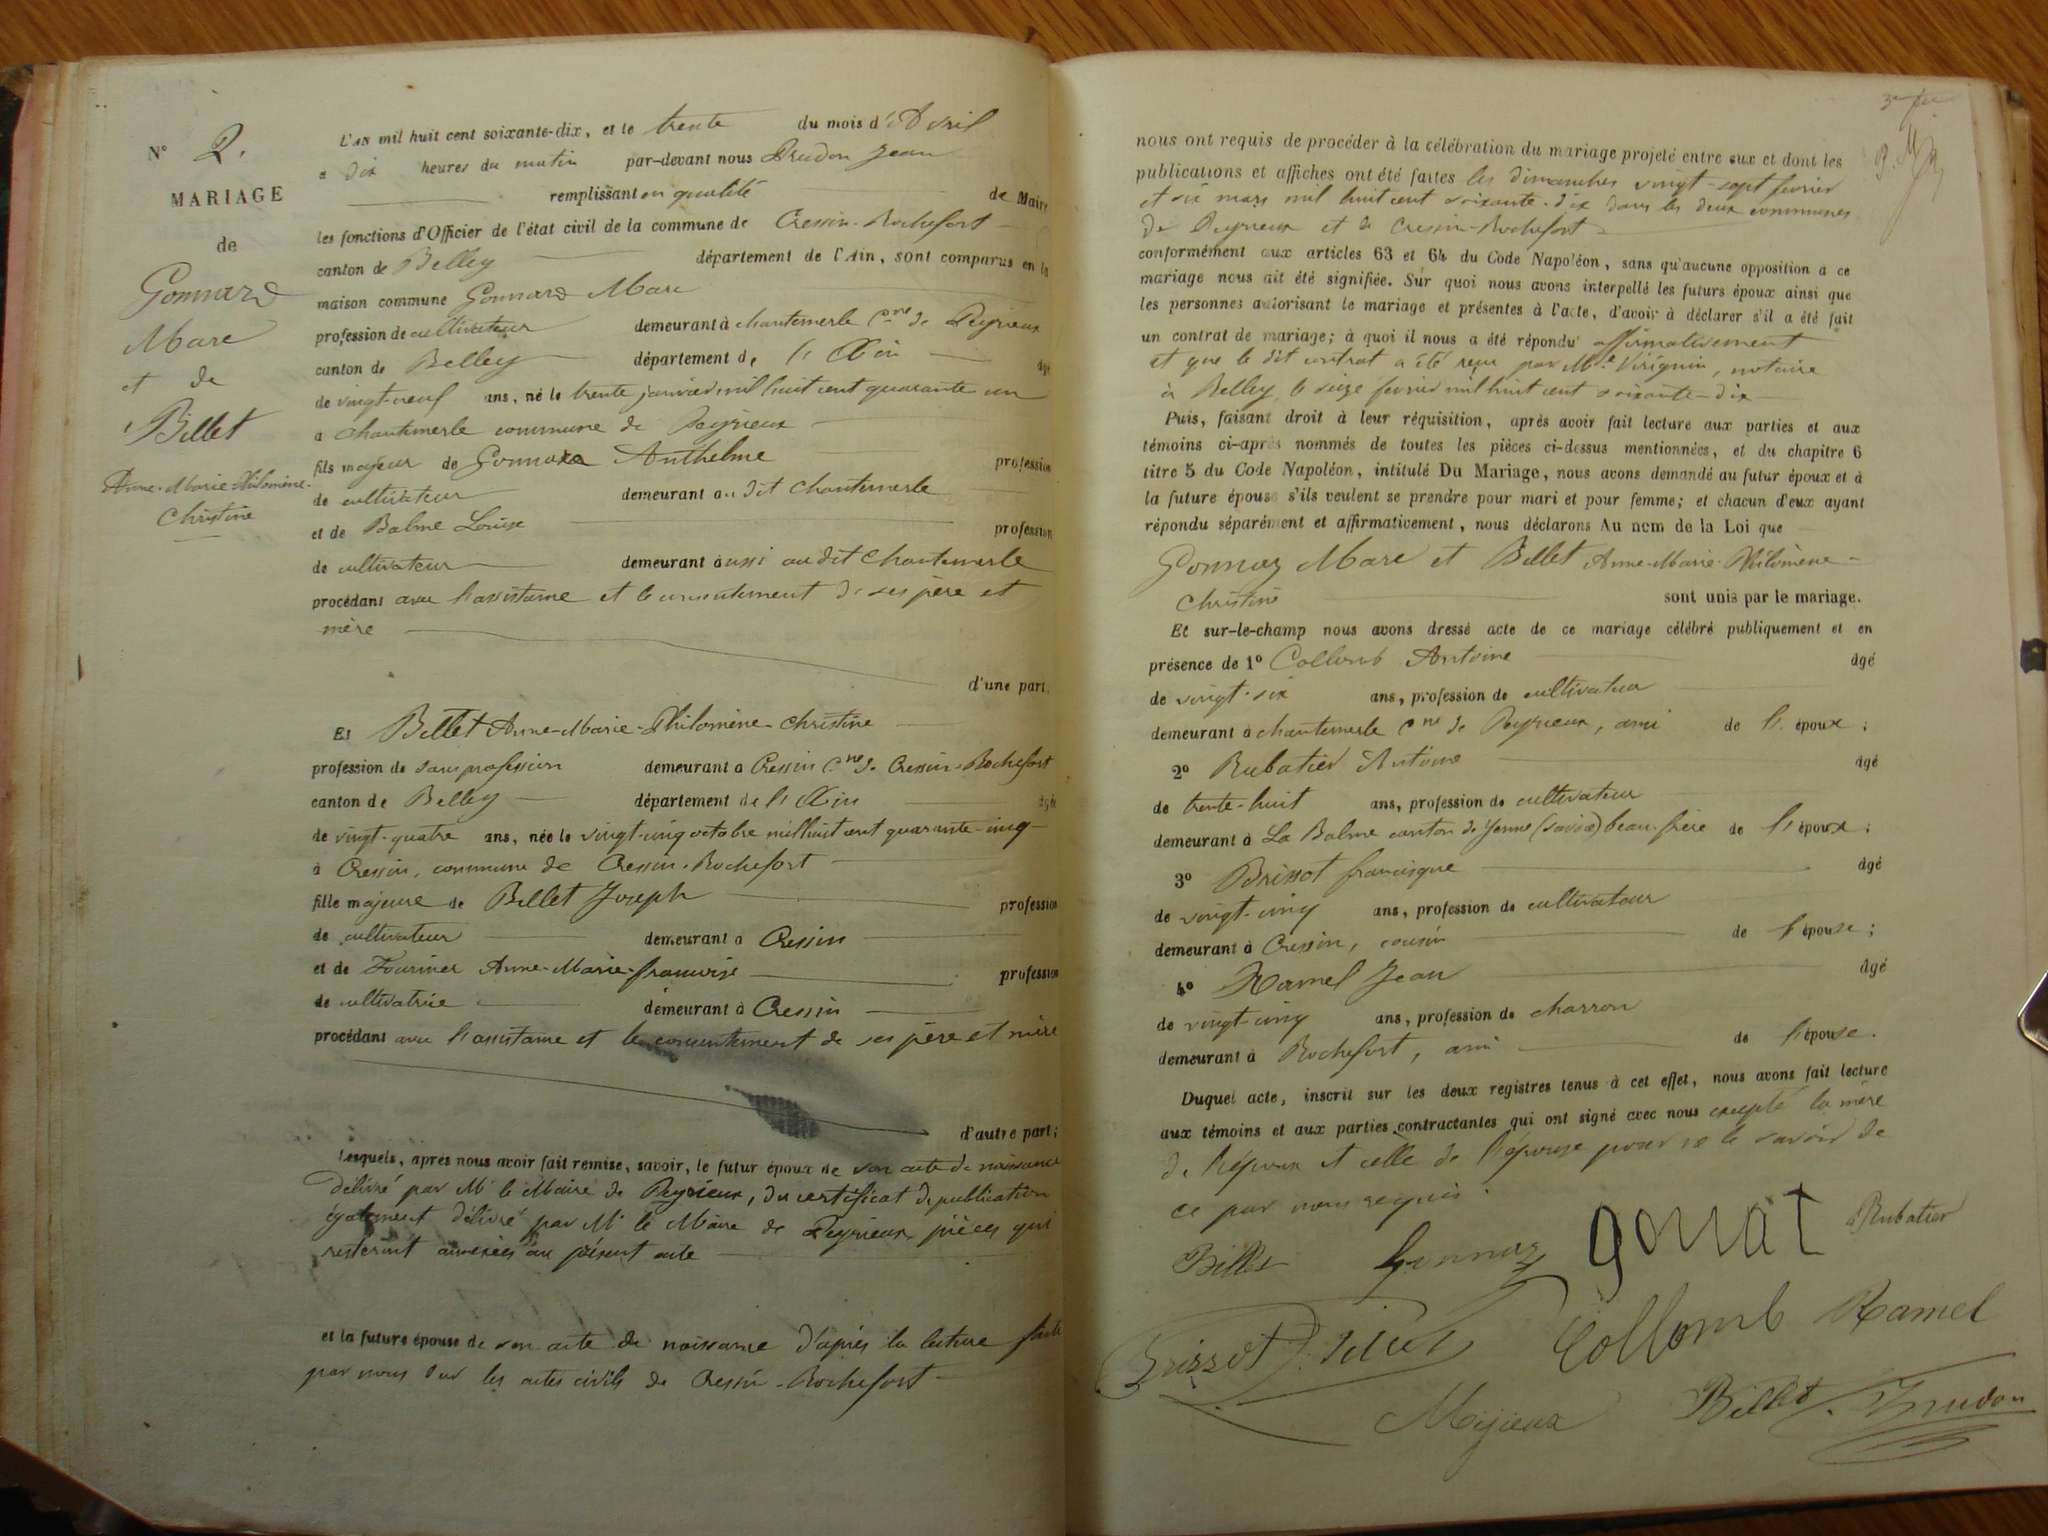 N° 2.
MARIAGE
de
Gonnard
Marc
et de
Billet
Anne-Marie-Philomène-
Christine
L'AN mil huit cent soixante-dix, et le trente du mois d'Avril
à dix heures du matin par-devant nous Prudon Jean
remplissant en qualité de Maire
les fonctions d'Officier de l'état civil de la commune de Cressin-Rochefort
canton de Belley département de l'Ain, sont comparus en la
maison commune Gonnard Marc
profession de cultivateur demeurant à chantemerle Cne de Peyrieux
canton de Belley département de l'Ain âgé
de vingt-neuf ans, né le trente janvier mil huit cent quarante un
à chantemerle commune de Peyrieux
fils majeur de Gonnard Anthelme profession
de cultivateur demeurant au dit chantemerle
et de Balme Louise profession
de cultivateur demeurant aussi au dit chantemerle
procédant avec l'assistance et le consentement de ses père et
mère
d'une part,
Et Billet Anne-Marie-Philomène-Christine
profession de sans profession demeurant à Cressin Cne de Cressin-Rochefort
canton de Belley département de l'Ain âgée
de vingt-quatre ans, née le vingt-cinq octobre mil huit cent quarante-cinq
à Cressin, commune de Cressin-Rochefort
fille majeure de Billet Joseph profession
de cultivateur demeurant à Cressin
et de Fournier Anne-Marie-françoise profession
de cultivatrice demeurant à Cressin
procédant avec l'assistance et le consentement de ses père et mère
d'autre part;
Lesquels, après nous avoir fait remise, savoir, le futur époux de son acte de naissance
délivré par Mr le Maire de Peyrieux, du certificat de publication
également délivré par Mr le Maire de Peyrieux pièces qui
resteront annexées au présent acte
et la future épouse de son acte de naissance d'après la lecture faite
par nous sur les actes civils de Cressin-Rochefort
nous ont requis de procéder à la célébration du mariage projeté entre eux et dont les
publications et affiches ont été faites les dimanches vingt-sept février
et six mars mil huit cent soixante-dix dans les deux communes
de Peyrieux et de Cressin-Rochefort
conformément aux articles 63 et 64 du Code Napoléon, sans qu'aucune opposition à ce
mariage nous ait été signifiée. Sur quoi nous avons interpellé les futurs époux ainsi que
les personnes autorisant le mariage et présentes à l'acte, d'avoir à déclarer s'il a été fait
un contrat de mariage; à quoi il nous a été répondu affirmativement
et que le dit contrat a été reçu par Me Virignin, notaire
à Belley, le seize février mil huit cent soixante-dix
Puis, faisant droit à leur réquisition, après avoir fait lecture aux parties et aux
témoins ci-après nommés de toutes les pièces ci-dessus mentionnées, et du chapitre 6
titre 5 du Code Napoléon, intitulé Du Mariage, nous avons demandé au futur époux et à
la future épouse s'ils veulent se prendre pour mari et pour femme; et chacun d'eux ayant
répondu séparément et affirmativement, nous déclarons Au nom de la Loi que
Gonnaz Marc et Billet Anne-Marie-Philomène-
Christine sont unis par le mariage.
Et sur-le-champ nous avons dressé acte de ce mariage célébré publiquement et en
présence de 1° Collomb Antoine âgé
de vingt-six ans, profession de cultivateur
demeurant à chantemerle Cne de Peyrieux, ami de l'époux;
2° Rubatier Antoine âgé
de trente-huit ans, profession de cultivateur
demeurant à La Balme canton de Yenne (savoie) beau-frère de l'époux;
3° Brissot francisque âgé
de vingt-cinq ans, profession de cultivateur
demeurant à Cressin, cousin de l'épouse;
4° Ramel Jean âgé
de vingt-cinq ans, profession de charron
demeurant à Rochefort, ami de l'épouse.
Duquel acte, inscrit sur les deux registres tenus à cet effet, nous avons fait lecture
aux témoins et aux parties contractantes qui ont signé avec nous excepté la mère
de l'époux et celle de l'épouse pour ne le savoir de
ce par nous requis.
Billet Gonnaz gonat Rubatier
Brissot Collomb Ramel
Mijieux Billet Prudon